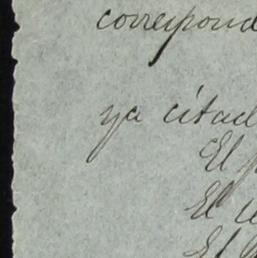 correspond
ya citad
El
El
El